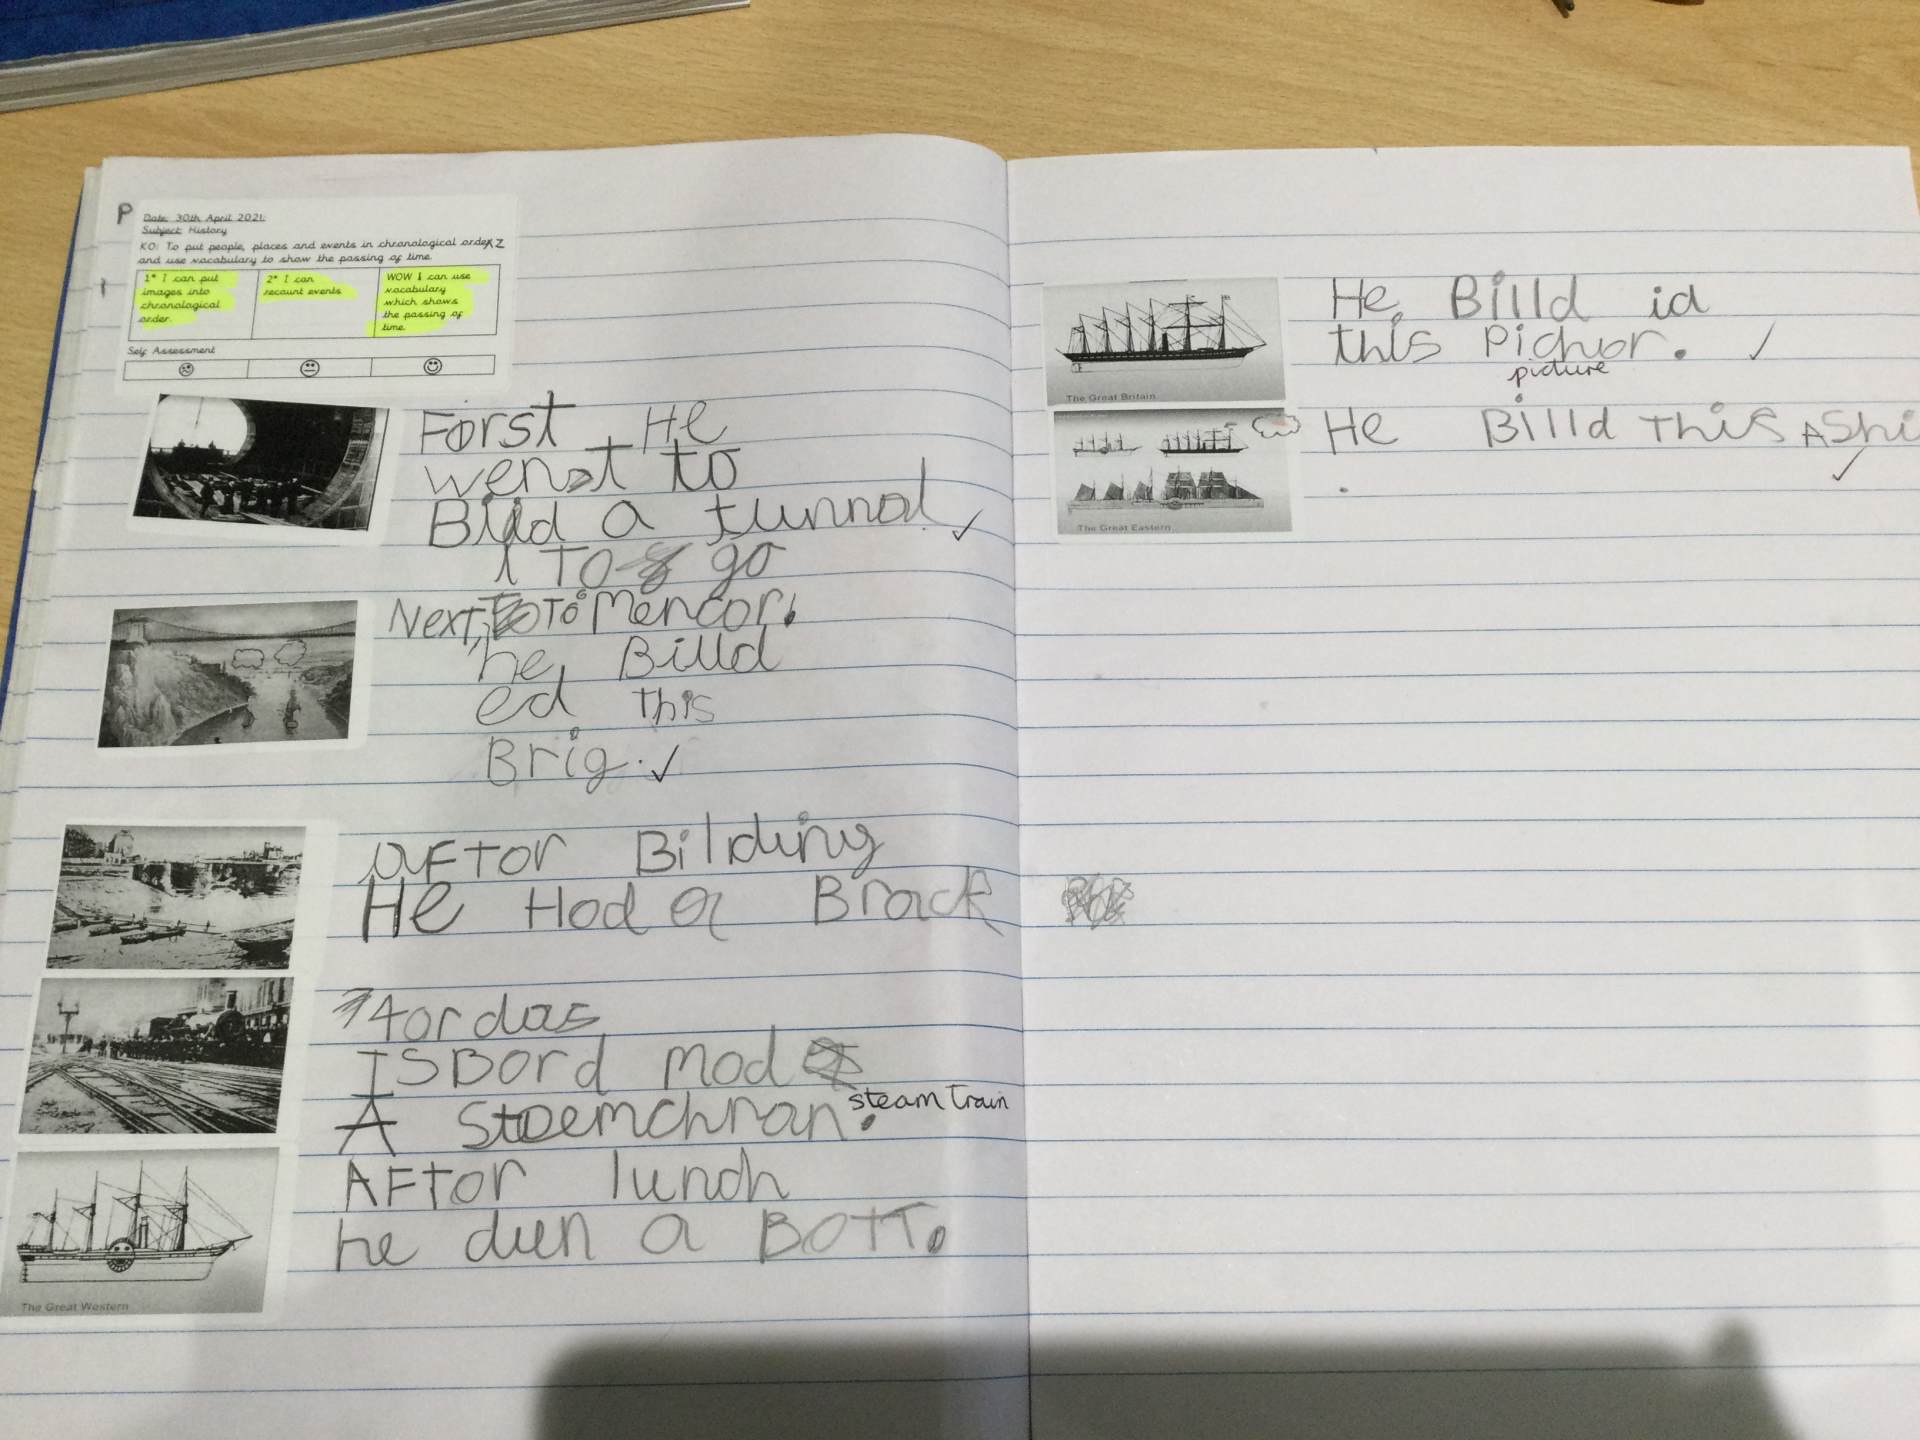 P
Date: 30th April 2021.
Subject: History
KO: To put people, places and events in chronological order
and use vocabulary to show the passing of time.
1* I can put images into chronological order.
2* I can recount events
WOW I can use vocabulary which shows the passing of time.
Self Assessment
Forst He
wenst to
Billd a tunnal
To go
Next, To Mencor.
he Billd
ed this
Brig.
aFTor Bilding
He Hod a Brack
4ordas
ISBord mod
A Stoemchran.
steam train
AFTor lunch
he dun a BOTT.
The Great Western
He Billd id
this Pichor.
picture
The Great Britain
He Billd This A Shi
The Great Eastern